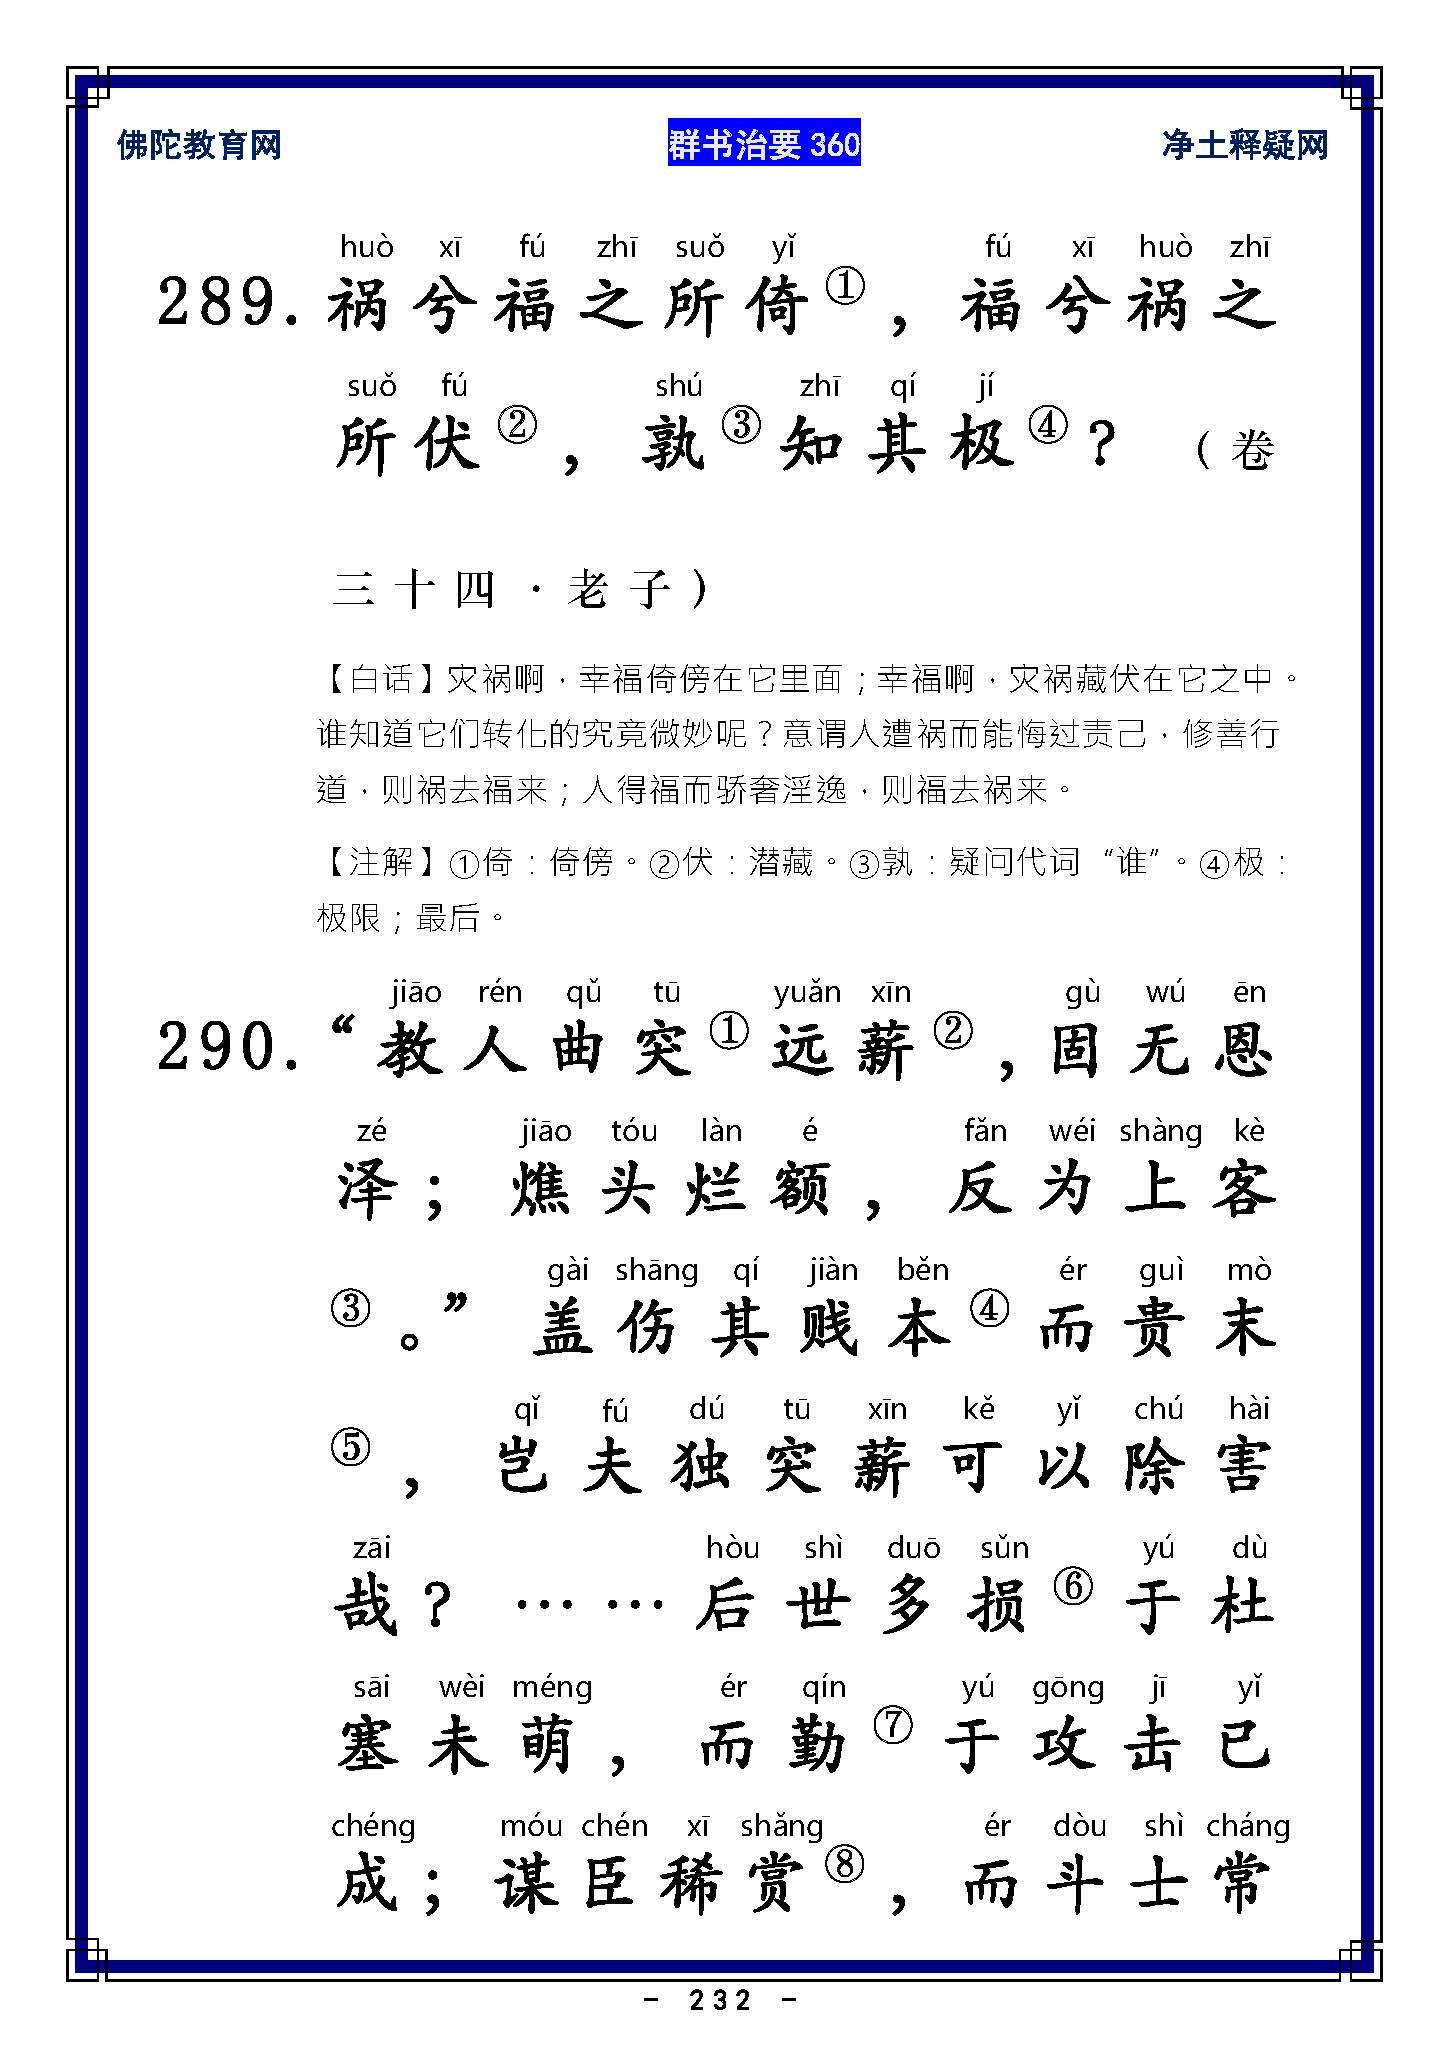 佛陀教育网 群书治要 360 净土释疑网
huò xī fú zhī suǒ yǐ fú xī huò zhī
289. 祸兮福之所倚①，福兮祸之
suǒ fú shú zhī qí jí
所伏②，孰③知其极④？（卷
三十四·老子）
【白话】灾祸啊，幸福倚傍在它里面；幸福啊，灾祸藏伏在它之中。
谁知道它们转化的究竟微妙呢？意谓人遭祸而能悔过责己，修善行
道，则祸去福来；人得福而骄奢淫逸，则福去祸来。
【注解】①倚：倚傍。②伏：潜藏。③孰：疑问代词“谁”。④极：
极限；最后。
jiāo rén qǔ tū yuǎn xīn gù wú ēn
290.“教人曲突①远薪②，固无恩
zé jiāo tóu làn é fǎn wéi shàng kè
泽；燋头烂额，反为上客
gài shāng qí jiàn běn ér guì mò
③。”盖伤其贱本④而贵末
qǐ fú dú tū xīn kě yǐ chú hài
⑤，岂夫独突薪可以除害
zāi hòu shì duō sǔn yú dù
哉？……后世多损⑥于杜
sāi wèi méng ér qín yú gōng jī yǐ
塞未萌，而勤⑦于攻击已
chéng móu chén xī shǎng ér dòu shì cháng
成；谋臣稀赏⑧，而斗士常
- 232 -